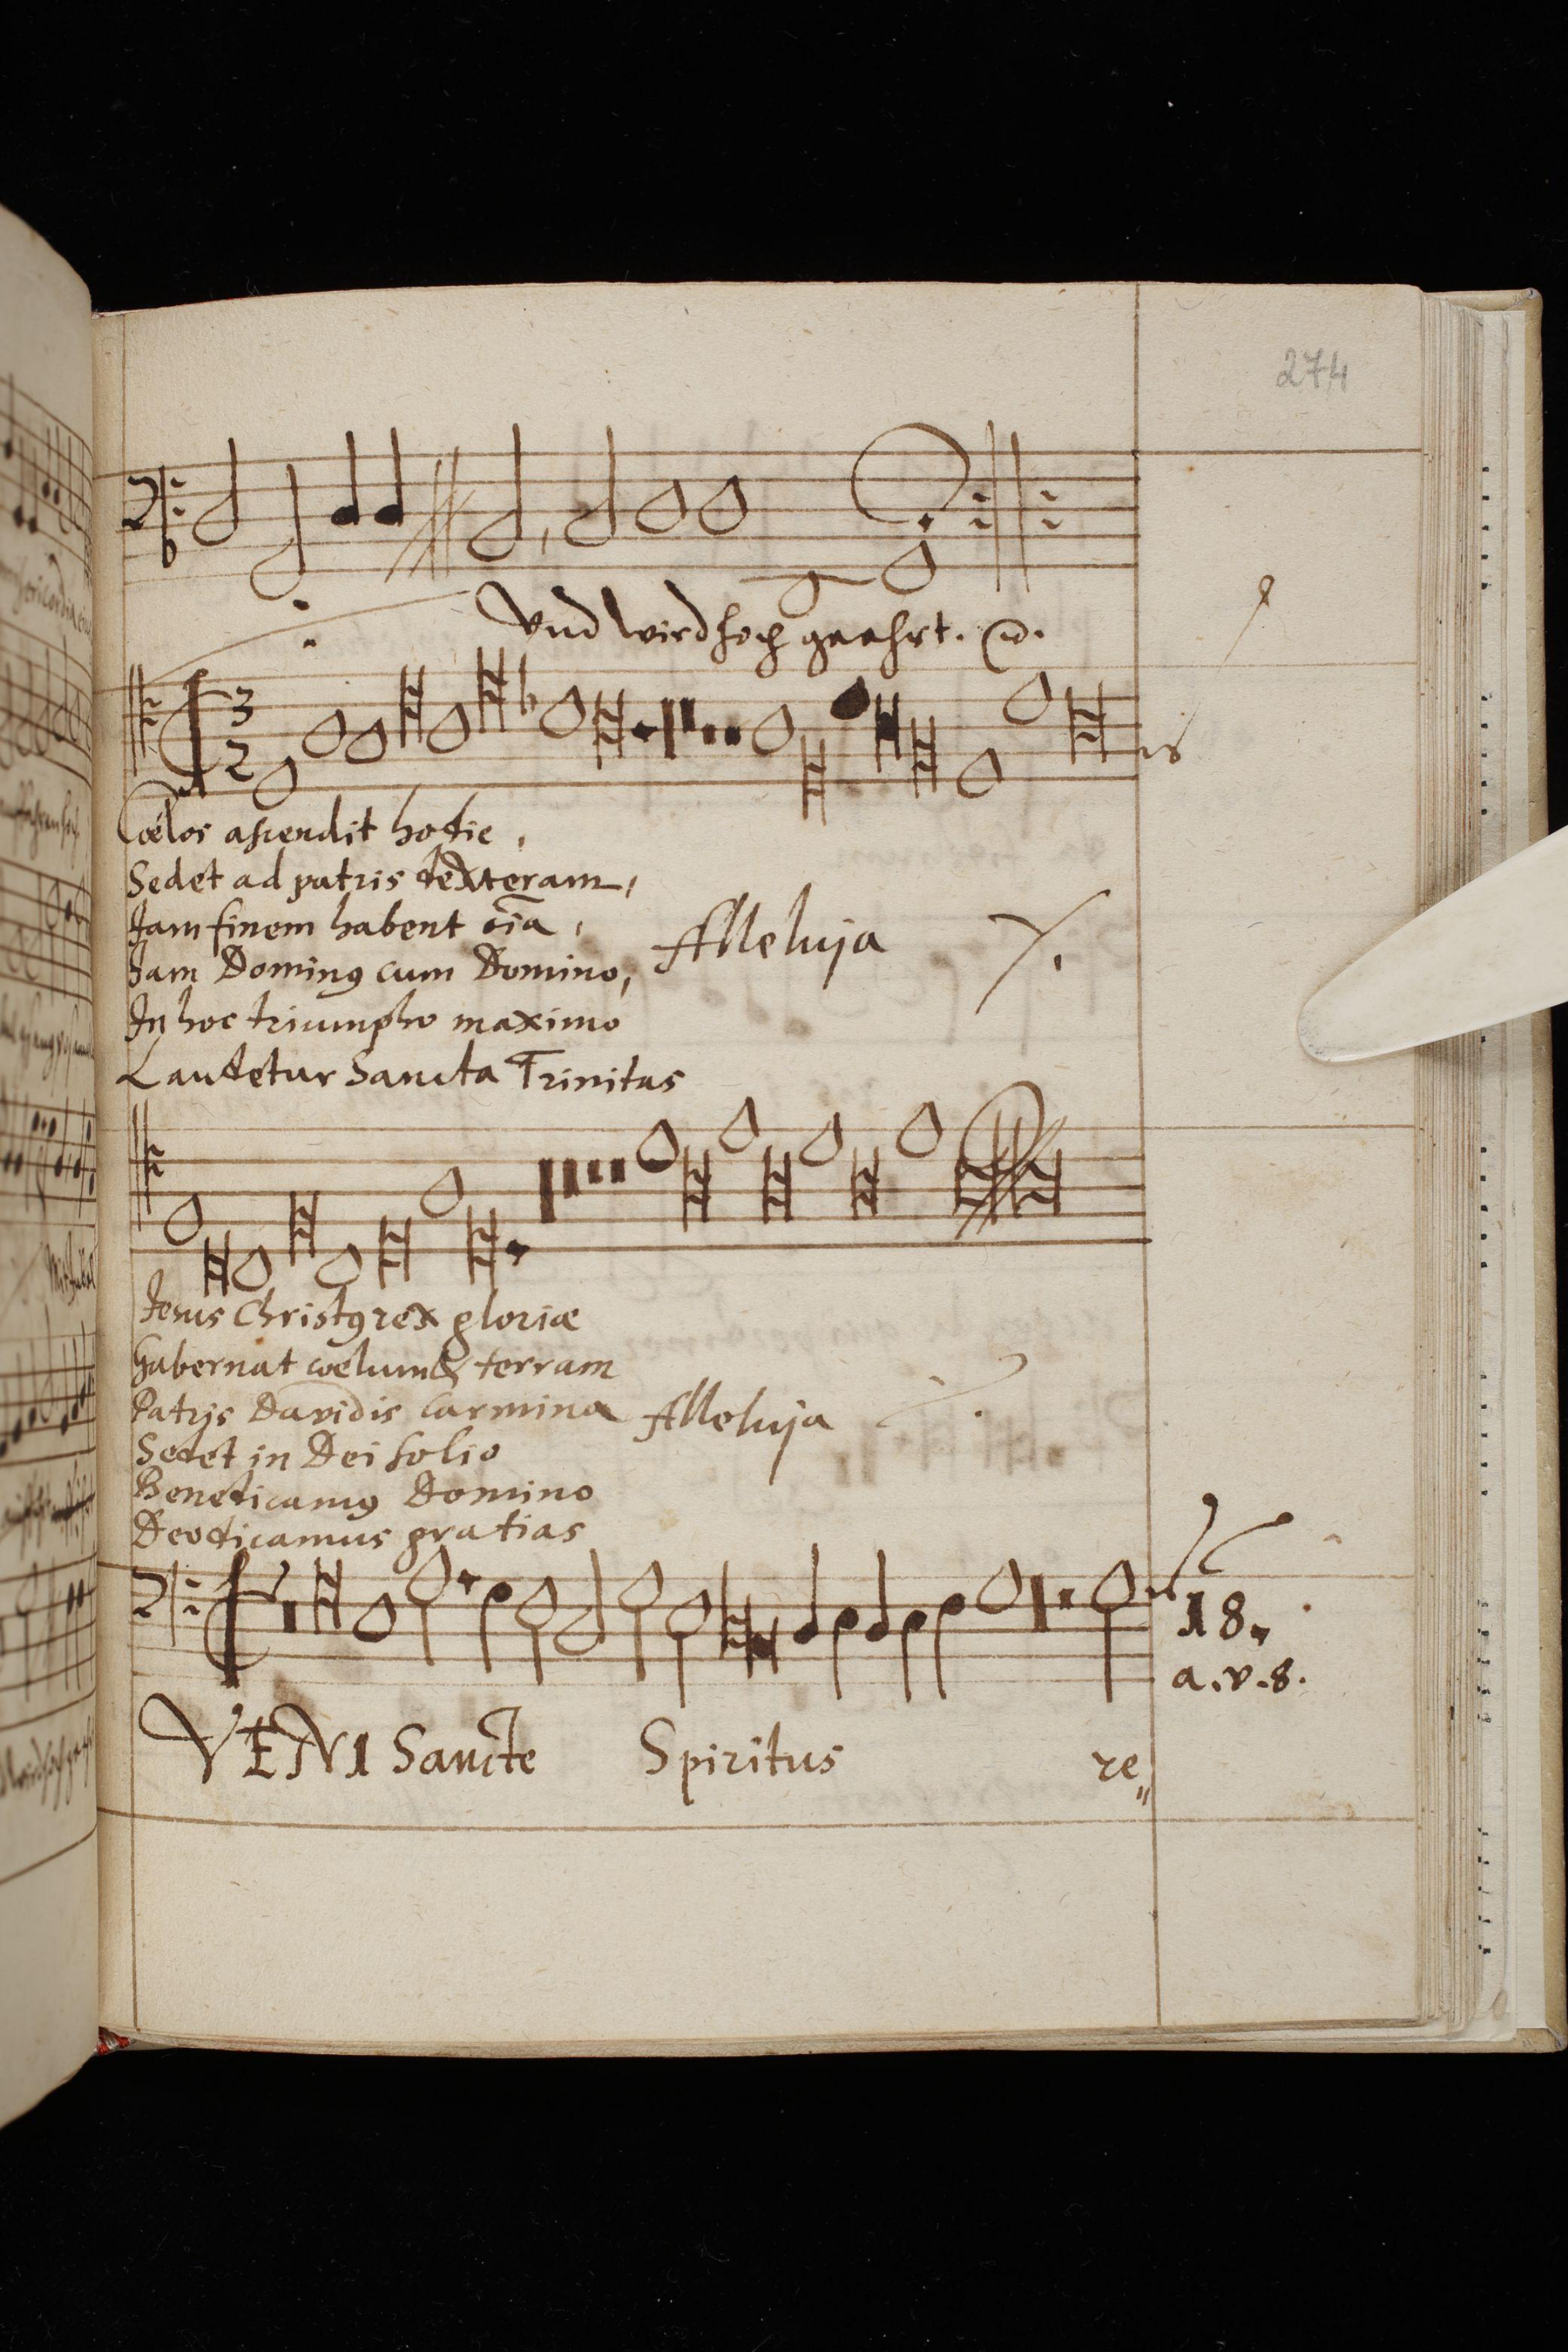 274
Vnd wird hoch geehrt.
3
2
Cœlos ascendit hodie,
Sedet ad patris dexteram,
Jam finem habent oīa,
Jam Dominꝰ cum Domino, Alleluja
In hoc triumpho maximo
Laudetur Sancta Trinitas
Jesus Christꝰ rex gloriæ
Gubernat cœlum & terram
Patris Davidis Carmina Alleluja
Sedet in Dei solio
Benedicamꝰ Domino
Deo dicamus gratias
18.
a.v.8.
VENI Sancte Spiritus re„